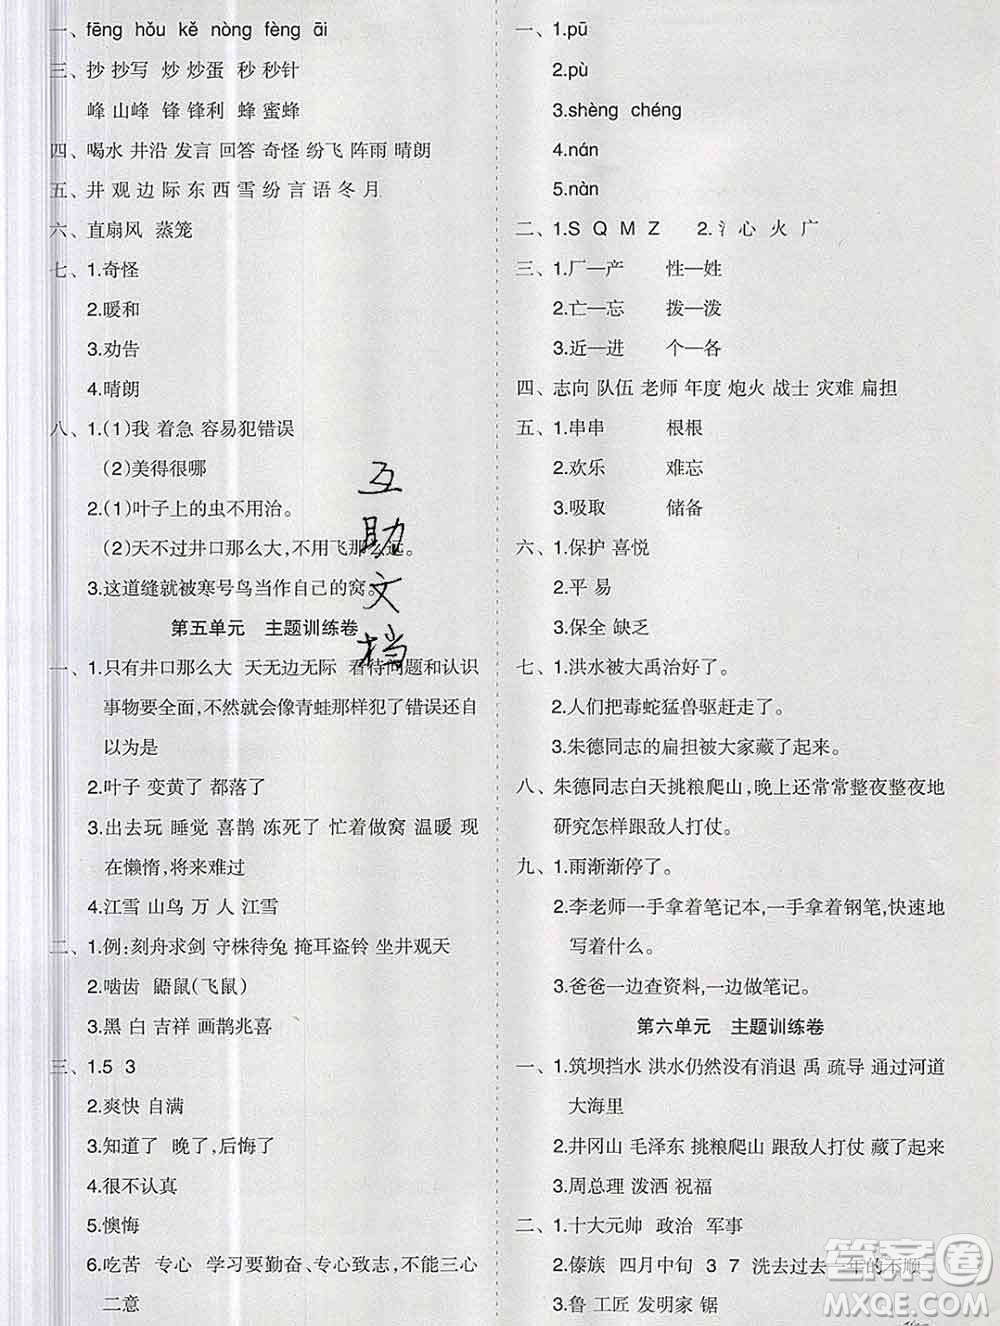 一、fēng hǒu kě nòng fèng āi
三、抄 抄写 炒 炒蛋 秒 秒针
峰 山峰 锋 锋利 蜂 蜜蜂
四、喝水 井沿 发言 回答 奇怪 纷飞 阵雨 晴朗
五、井 观 边 际 东 西 雪 纷 言 语 冬 月
六、直扇风 蒸笼
七、1.奇怪
2.暖和
3.劝告
4.晴朗
八、1.(1)我 着急 容易犯错误
(2)美得很哪
2.(1)叶子上的虫不用治。
(2)天不过井口那么大,不用飞那么远。
3.这道缝就被寒号鸟当作自己的窝。
第五单元 主题训练卷
一、1.只有井口那么大 天无边无际 看待问题和认识
事物要全面,不然就会像青蛙那样犯了错误还自
以为是
2.叶子 变黄了 都落了
3.出去玩 睡觉 喜鹊 冻死了 忙着做窝 温暖 现
在懒惰,将来难过
4.江雪 山鸟 万 人 江雪
二、1.例:刻舟求剑 守株待兔 掩耳盗铃 坐井观天
2.啮齿 鼯鼠(飞鼠)
3.黑 白 吉祥 画鹊兆喜
三、1.5 3
2.爽快 自满
3.知道了 晚了,后悔了
4.很不认真
5.懊悔
6.吃苦 专心 学习要勤奋、专心致志,不能三心
二意
一、1.pū
2.pù
3.shèng chéng
4.nán
5.nàn
二、1.S Q M Z 2.氵 心 火 广
三、1.厂—产 性—姓
2.亡—忘 拨—泼
3.近—进 个—各
四、志向 队伍 老师 年度 炮火 战士 灾难 扁担
五、1.串串 根根
2.欢乐 难忘
3.吸取 储备
六、1.保护 喜悦
2.平 易
3.保全 缺乏
七、1.洪水被大禹治好了。
2.人们把毒蛇猛兽驱赶走了。
3.朱德同志的扁担被大家藏了起来。
八、朱德同志白天挑粮爬山,晚上还常常整夜整夜地
研究怎样跟敌人打仗。
九、1.雨渐渐停了。
2.李老师一手拿着笔记本,一手拿着钢笔,快速地
写着什么。
3.爸爸一边查资料,一边做笔记。
第六单元 主题训练卷
一、1.筑坝挡水 洪水仍然没有消退 禹 疏导 通过河道
大海里
2.井冈山 毛泽东 挑粮爬山 跟敌人打仗 藏了起来
3.周总理 泼洒 祝福
二、1.十大元帅 政治 军事
2.傣族 四月中旬 3 7 洗去过去一年的不顺
3.鲁 工匠 发明家 锯
互助文档
答案圈
MXQE.COM